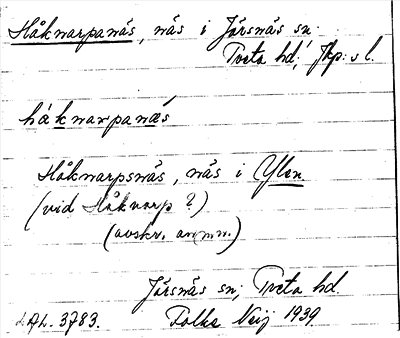 Håknarpanäs, näs i Järsnäs sn.
Tveta hd; Jkp:s l.
håknarpanäs
Håknarpsnäs, näs i Ylen
(vid Håknarp ?)
(avskr. anm.)
Järsnäs sn; Tveta hd.
LAL. 3783. Folke Neij 1939.